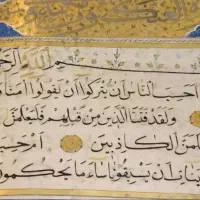 العنكبوت
بِسْمِ اللّٰهِ الرَّحْ
اَحَسِبَ النَّاسُ اَنْ يُتْرَكُوا اَنْ يَقُولُوا اٰمَنَّا
وَلَقَدْ فَتَنَّا الَّذِينَ مِنْ قَبْلِهِمْ فَلَيَعْلَمَنَّ
لَمَنَّ الْكَاذِبِينَ اَمْ حَسِبَ
يِّئَاتِ اَنْ يَسْبِقُونَا سَاءَ مَا يَحْكُمُونَ